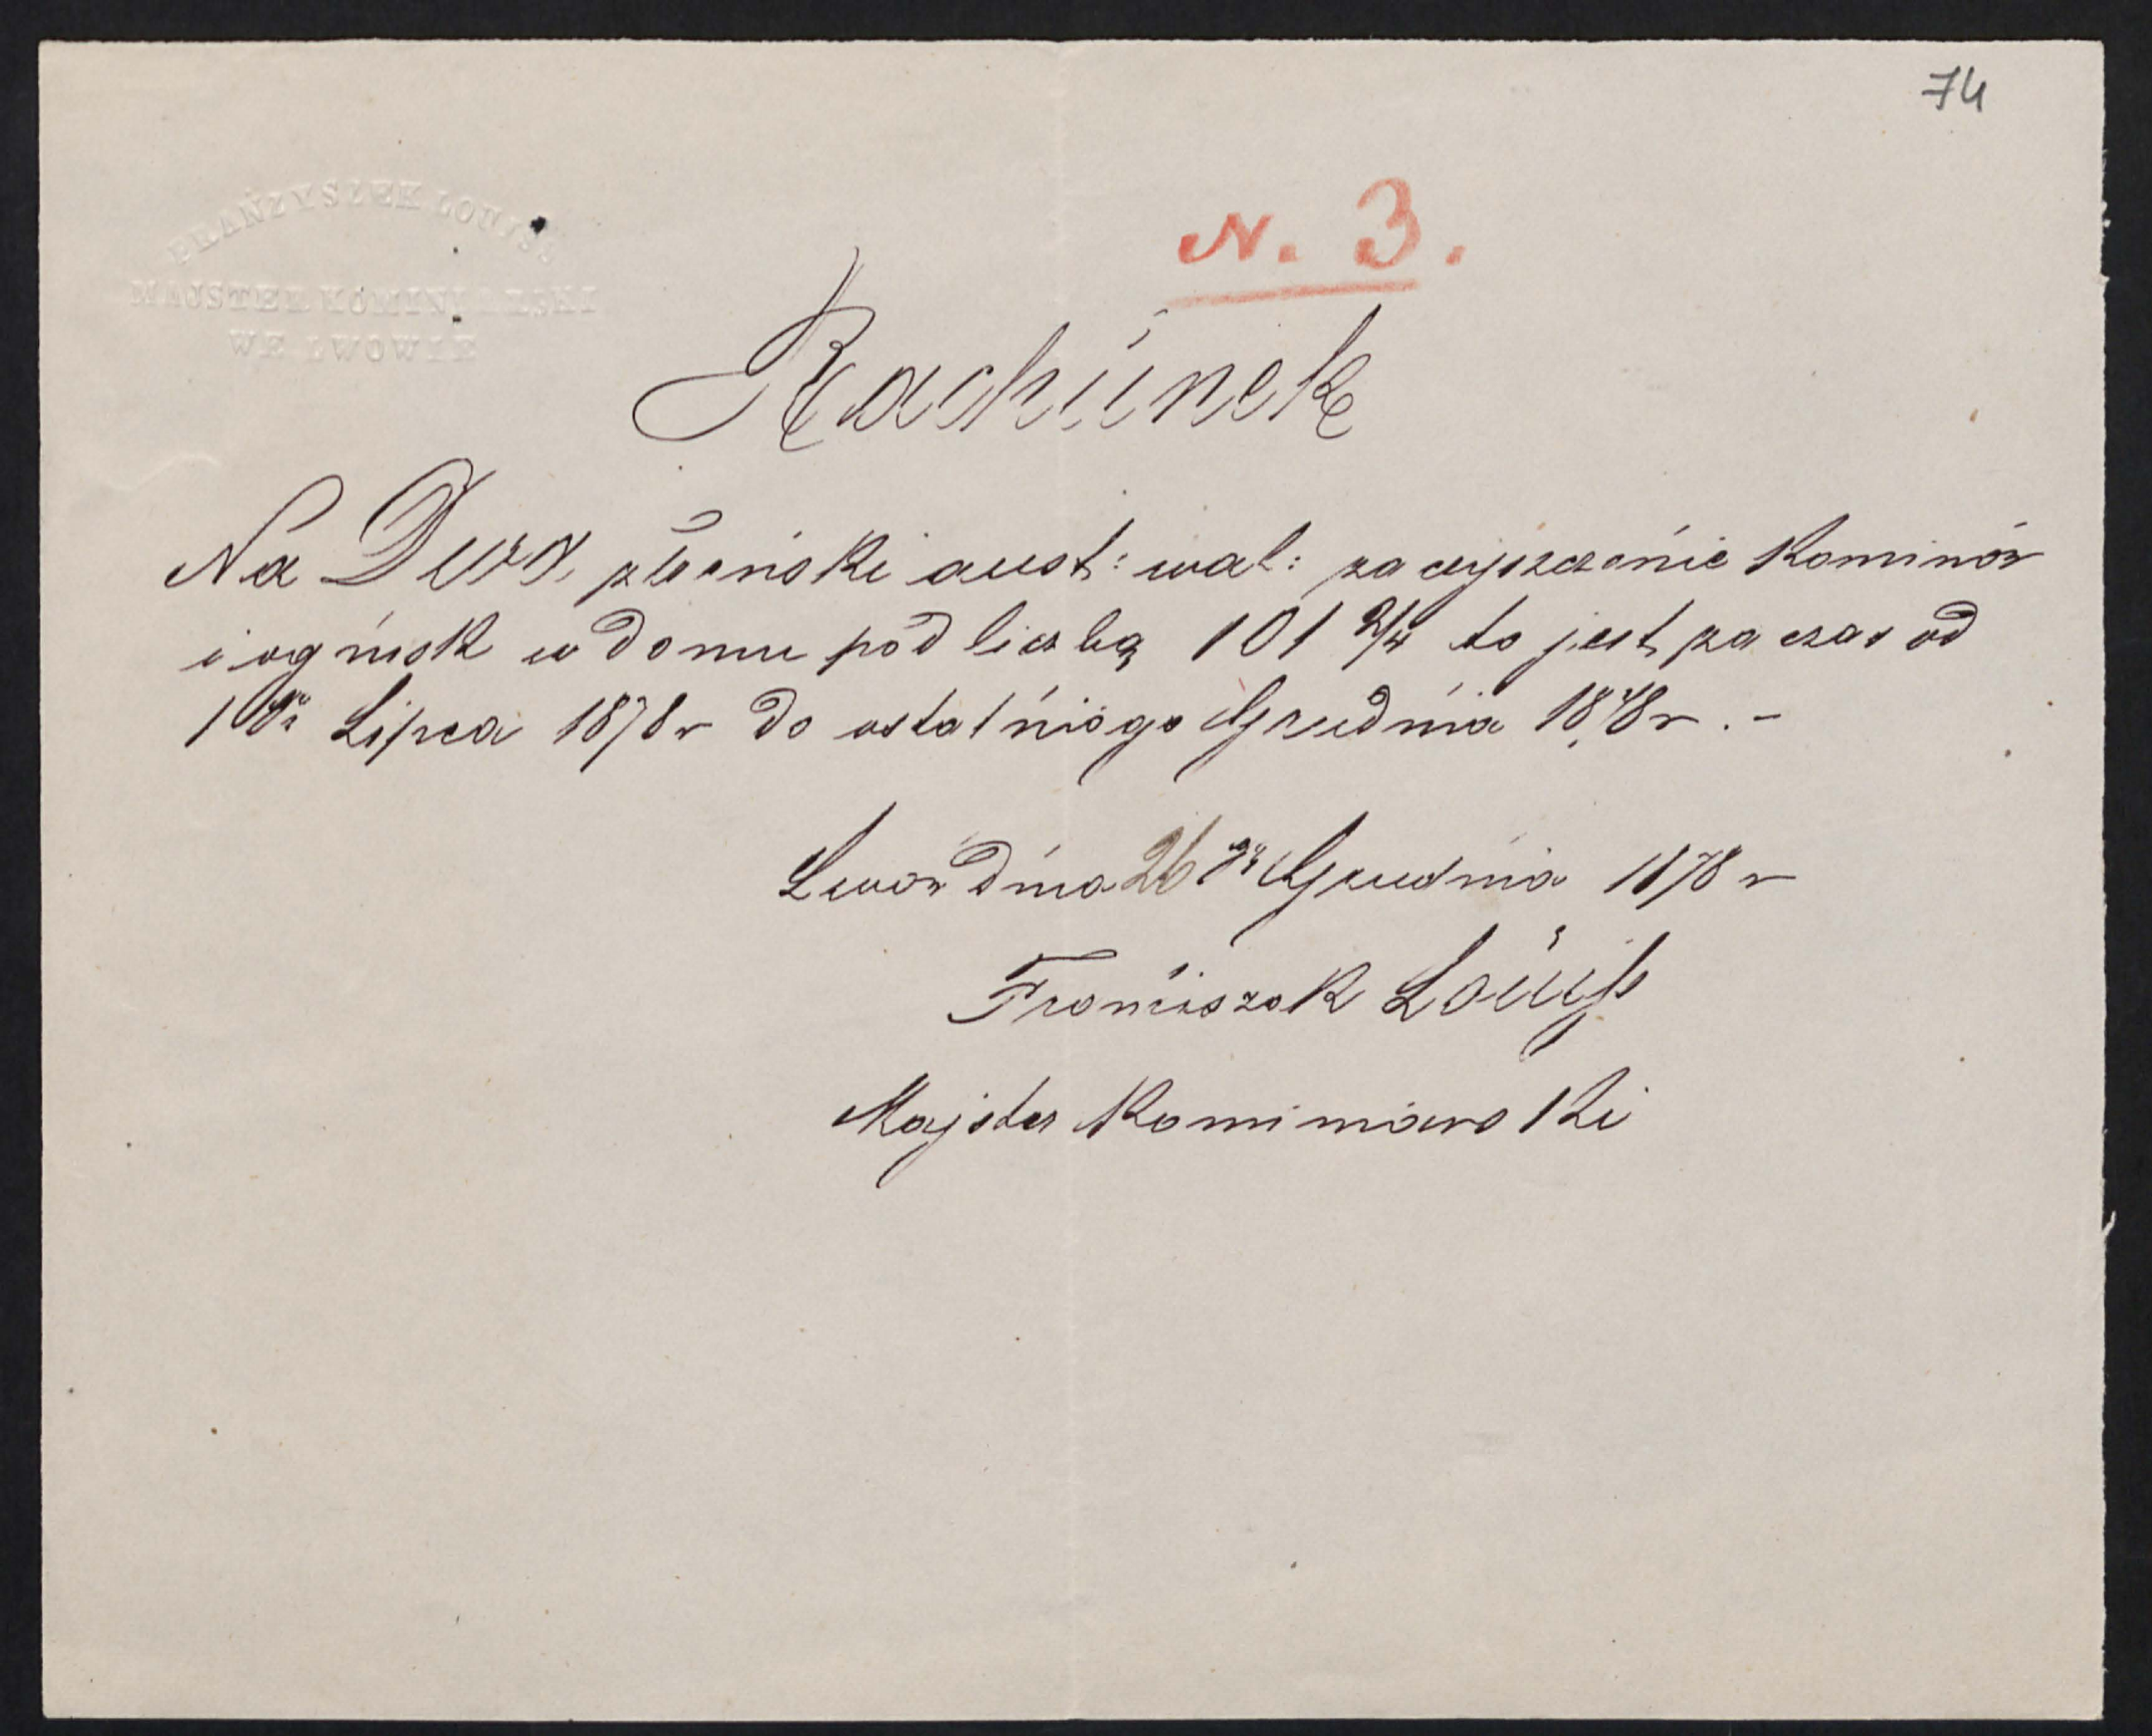 74
FRANZYSZEK LOUJSS
MAJSTER KOMINIARSKI
WE LWOWIE
N. 3.
Rachunek
Na aust: wal: za czyszczenie Kominów
i ognisk w domu pod liczbą 101 2/4 to jest za czas od
1go Lipca 1878 r do ostatniego Grudnia 1878 r. -
Lwów dnia 26go Grudnia 1878 r
Franciszek Louiss
Majster Kominiarski